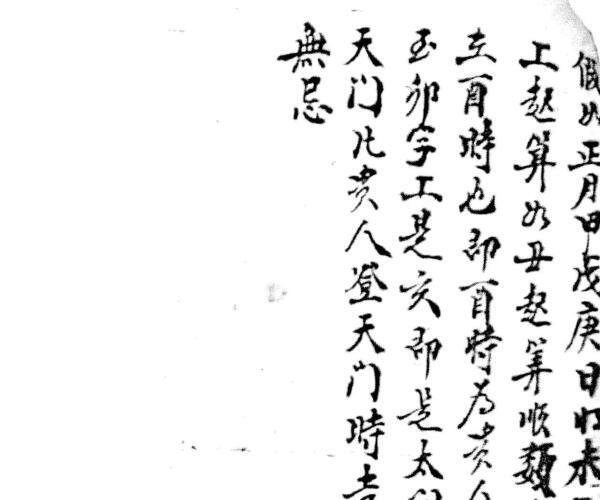 假如正月甲戊庚日将未
上起算如丑起算順数
在酉時也即酉時為貴人
至卯字上是亥即是太
天門此貴人登天門時
無忌